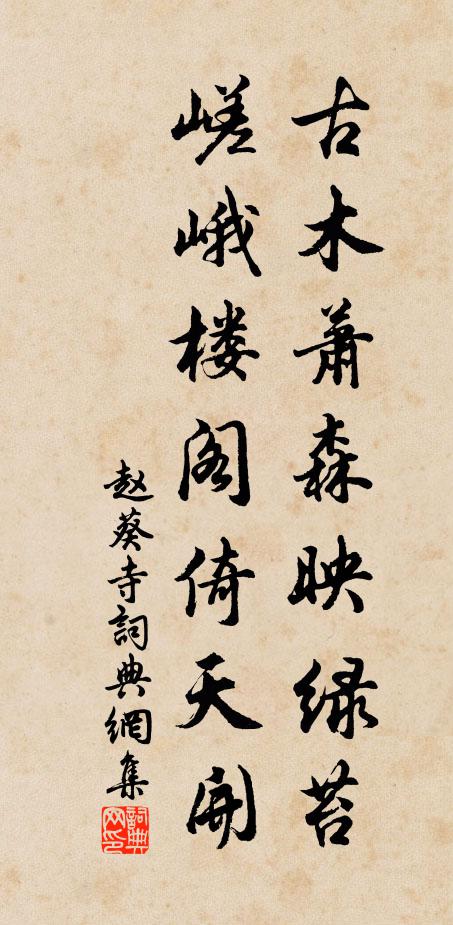 古木萧森映绿苔
嵯峨楼阁倚天开
赵葵寺詞典網集
詞典网印